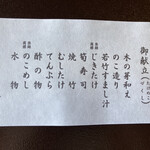 御献立
木の芽和え
のこ造り
若竹すまし汁
じきたけ
筍寿司
焼竹
むしたけ
てんぷら
酢の物
のこめし
水物